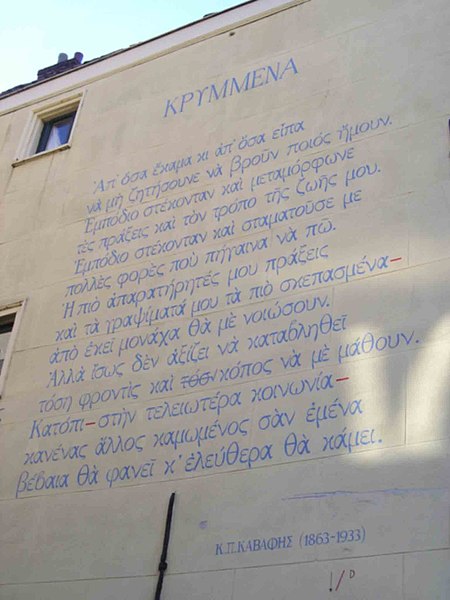 ΚΡΥΜΜΕΝΑ
Ἀπ' ὅσα ἔκαμα κι ἀπ' ὅσα εἶπα
νὰ μὴ ζητήσουνε νὰ βροῦν ποιός ἤμουν.
Ἐμπόδιο στέκονταν καὶ μεταμόρφωνε
τὲς πράξεις καὶ τὸν τρόπο τῆς ζωῆς μου.
Ἐμπόδιο στέκονταν καὶ σταματοῦσε με
πολλὲς φορὲς ποὺ πήγαινα νὰ πῶ.
Ἡ πιὸ ἀπαρατήρητές μου πράξεις
καὶ τὰ γραψίματά μου τὰ πιὸ σκεπασμένα–
ἀπὸ ἐκεῖ μονάχα θὰ μὲ νοιώσουν.
Ἀλλὰ ἴσως δὲν ἀξίζει νὰ καταβληθεῖ
τόση φροντὶς καὶ τόσι κόπος νὰ μὲ μάθουν.
Κατόπι–στὴν τελειωτέρα κοινωνία–
κανένας ἄλλος καμωμένος σὰν ἐμένα
βέβαια θὰ φανεῖ κ' ἐλεύθερα θὰ κάμει.
Κ.Π.ΚΑΒΑΦΗΣ (1863-1933)